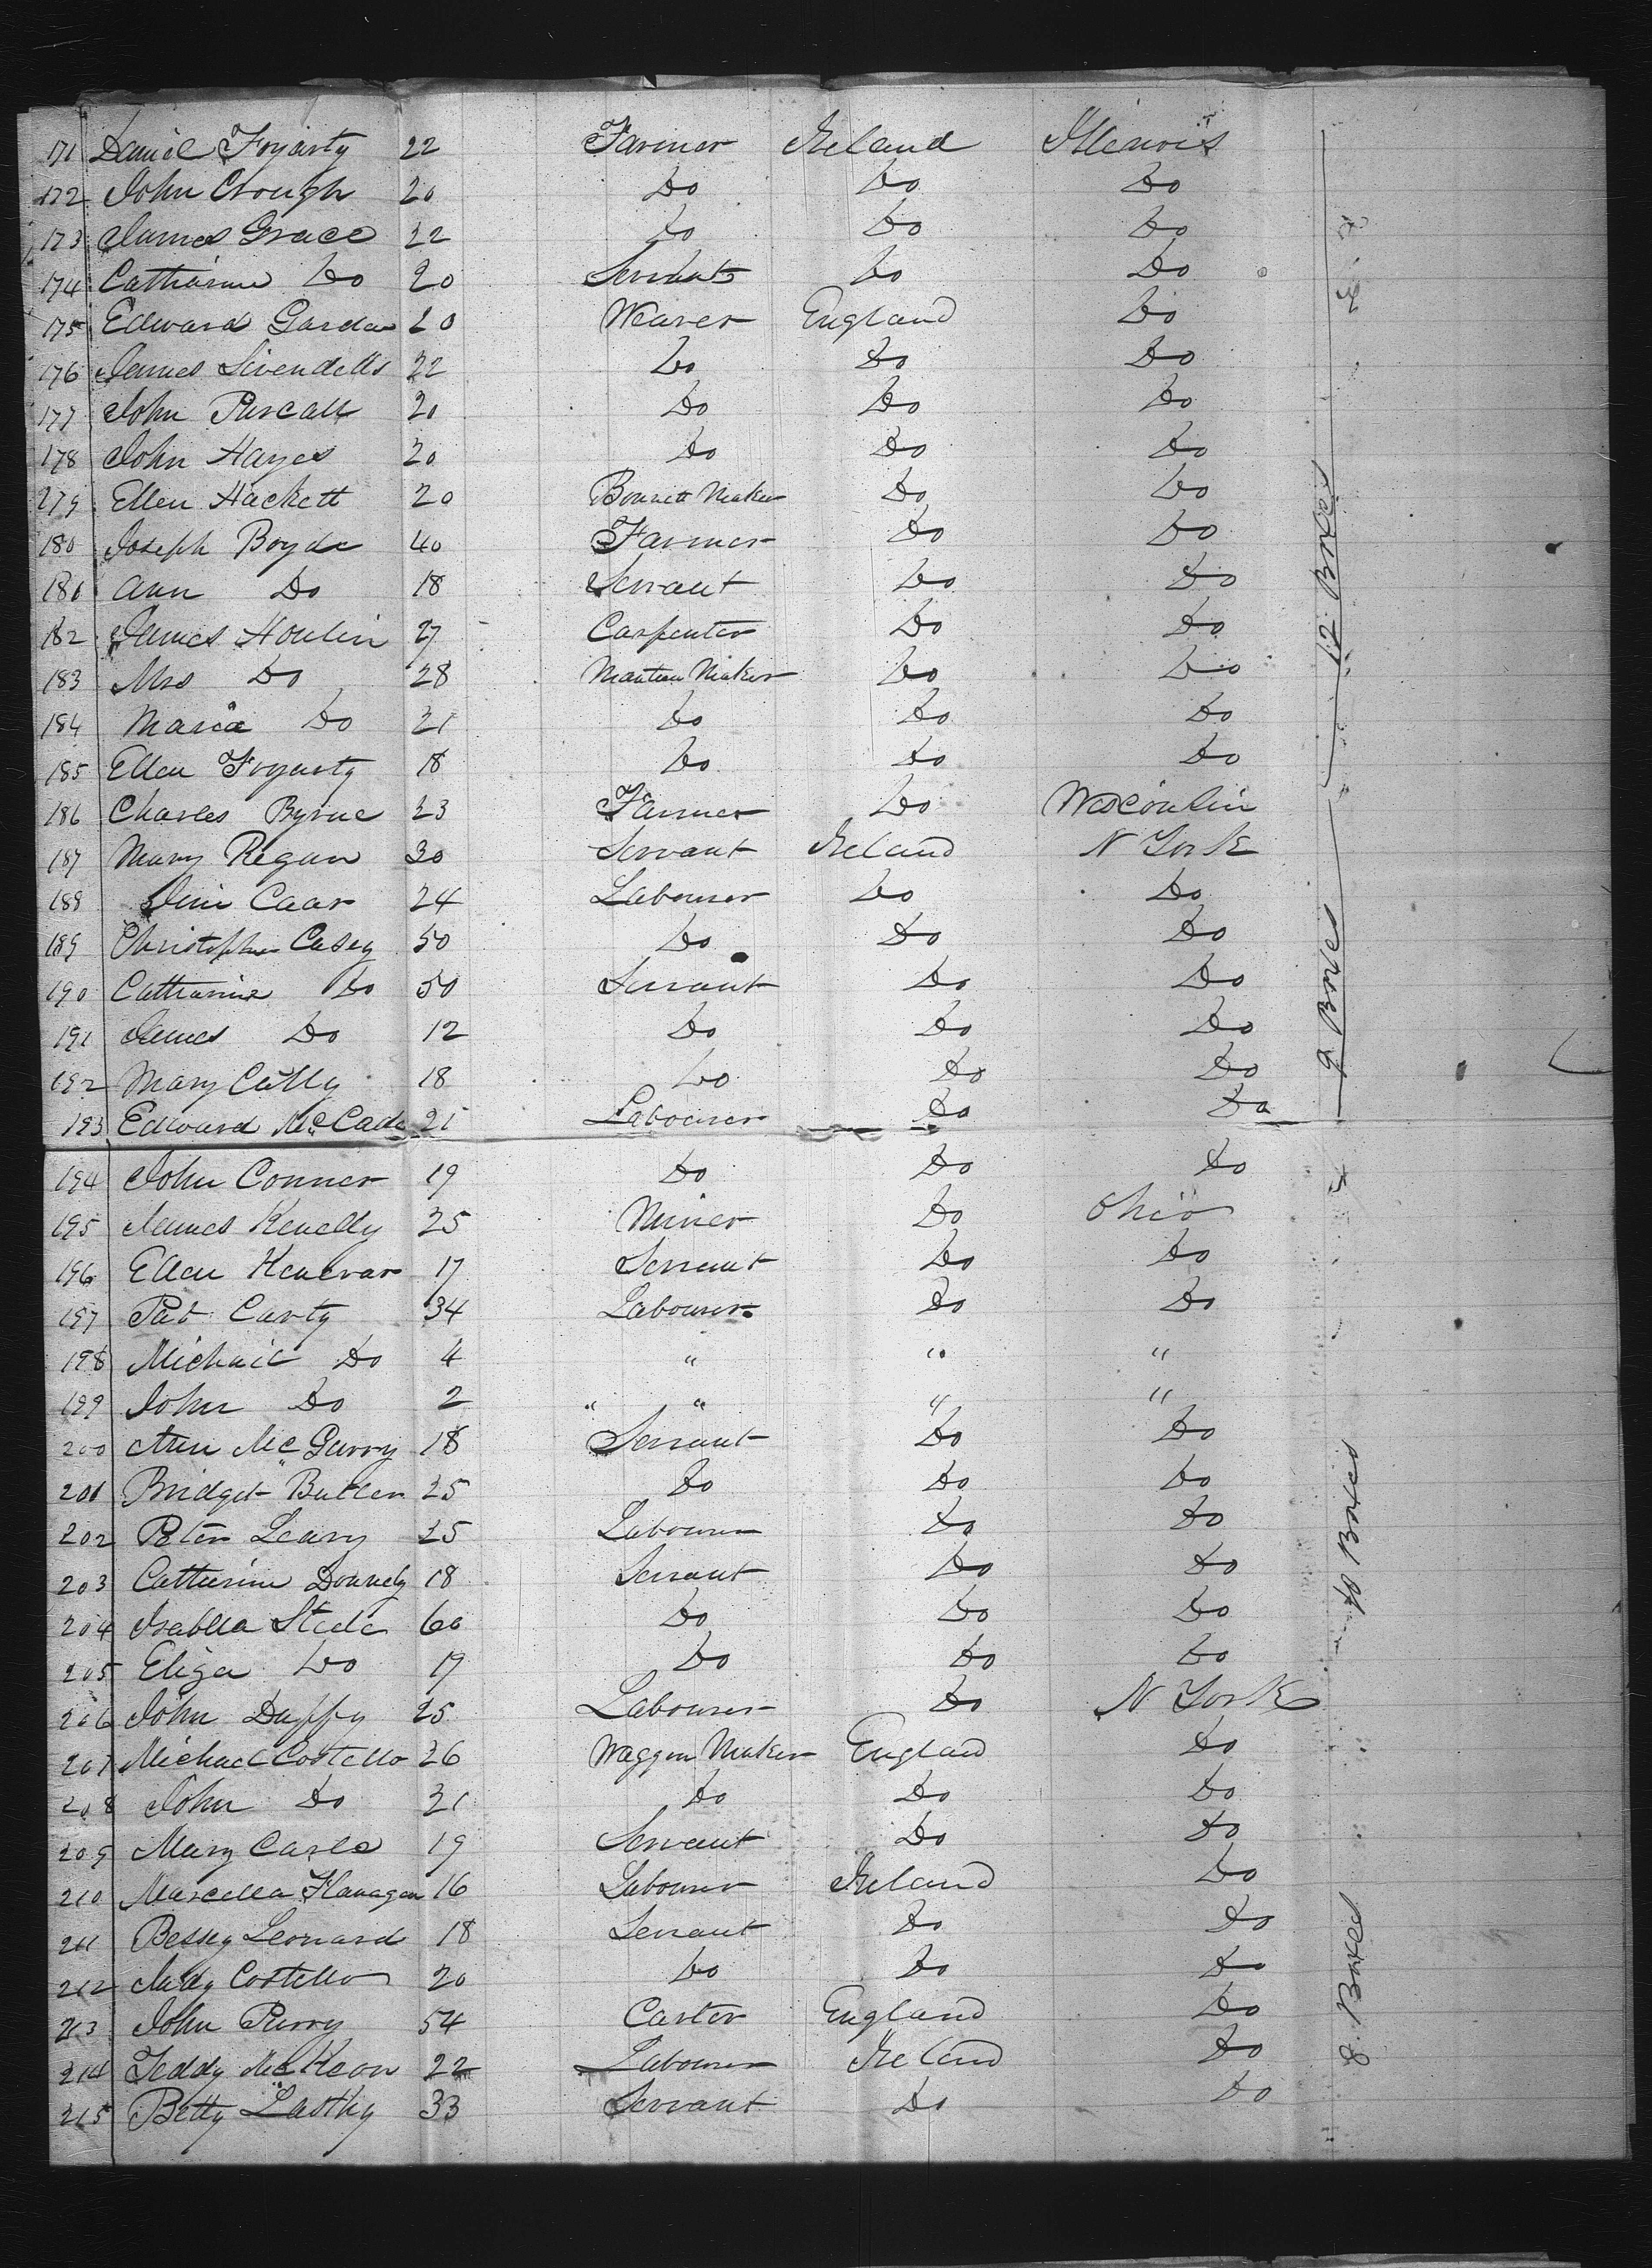 171 Daniel Fogarty 22 Farmer Ireland Illinois
172 John Crough 20 Do Do Do
173 James Grace 22 Do Do Do
174 Catharine Do 20 Servant Do Do
175 Edward Garda 20 Weaver England Do
176 James Sivendells 22 Do Do Do
177 John Purcall 20 Do Do Do
178 John Hayes 20 Do Do Do
179 Ellen Hackett 20 Bonnett Maker Do Do
180 Joseph Boyde 40 Farmer Do Do
181 Ann Do 18 Servant Do Do
182 James Houlin 27 Carpenter Do Do
183 Mrs Do 28 Mantua Maker Do Do
184 Maria Do 21 Do Do Do
185 Ellen Fogarty 18 Do Do Do
12 Boxes
186 Charles Byrne 23 Farmer Do Wisconsin
187 Mary Regan 30 Servant Ireland N York
188 Jim Caar 24 Labourer Do Do
189 Christopher Casey 50 Do Do Do
190 Catharine Do 50 Servant Do Do
191 James Do 12 Do Do Do
192 Mary Cully 18 Do Do Do
193 Edward McCade 21 Labourer Do Do
9 Boxes
194 John Conner 19 Do Do Do
195 James Kenelly 25 Miner Do Ohio
196 Ellen 17 Servant Do Do
197 Pat Carty 34 Labourer Do Do
198 Michail Do 4 " " "
199 John Do 2 " " " "
200 Ann McGurry 18 Servant Do Do
201 Bridget Butler 25 Do Do Do
202 Peter Leary 25 Labourer Do Do
203 Catharine Donnely 18 Servant Do Do
204 Isabella Steele 60 Do Do Do
205 Eliza Do 19 Do Do Do
10 Boxes
206 John Duffy 25 Labourer Do N York
207 Michael Costello 26 Waggon Maker England Do
208 John Do 21 Do Do Do
209 Mary Carle 19 Servant Do Do
210 Marcella Flanagan 16 Labourer Ireland Do
211 Bessey Leonard 18 Servant Do Do
212 Judy Costello 20 Do Do Do
213 John Purry 54 Carter England Do
214 Teddy McKeon 22 Labourer Ireland Do
215 Betty Lasthy 33 Servant Do Do
8 Boxes